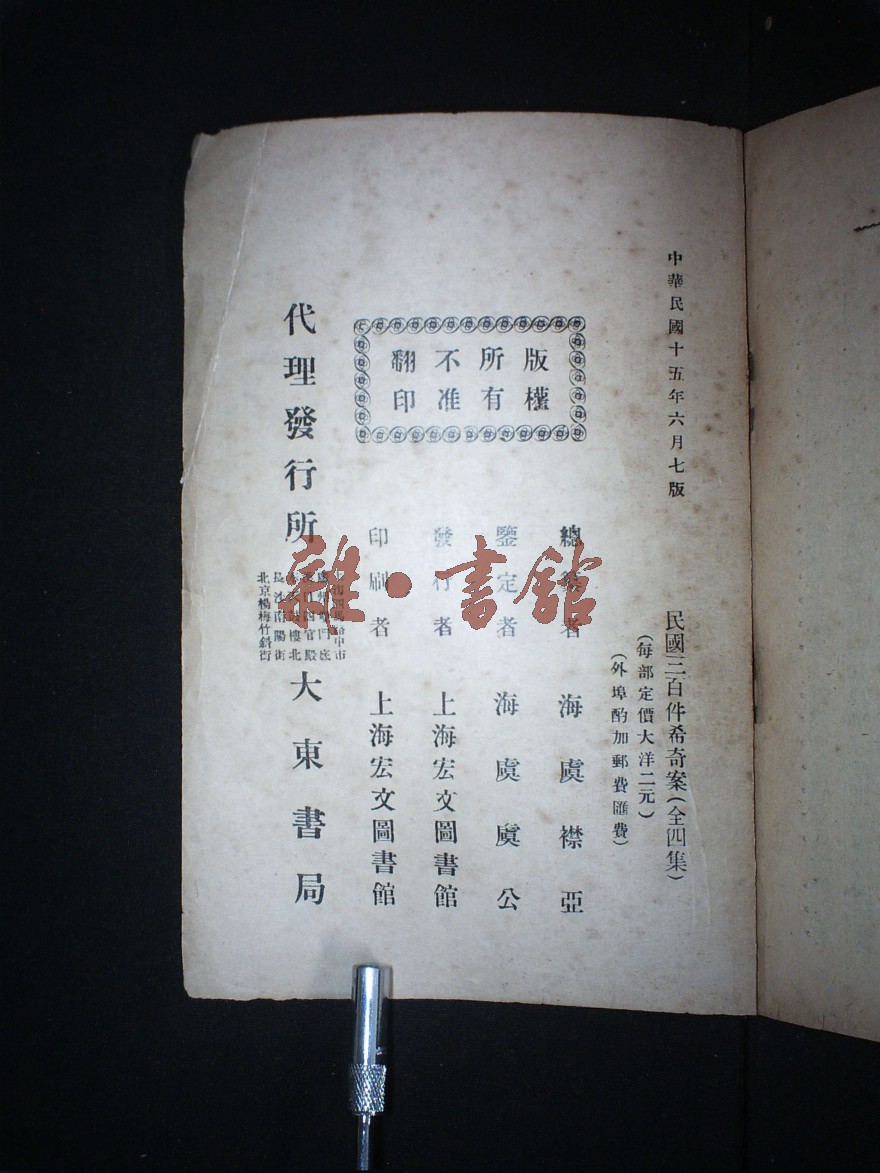 中華民國十五年六月七版
民國三百件希奇案(全四集)
(每部定價大洋二元)
(外埠酌加郵費匯費)
版權
所有
不准
翻印
總纂者 海虞襟亞
鑒定者 海虞虞公
發行者 上海宏文圖書館
印刷者 上海宏文圖書館
代理發行所
長沙南陽街
北京楊梅竹斜街
大東書局
雜·書館